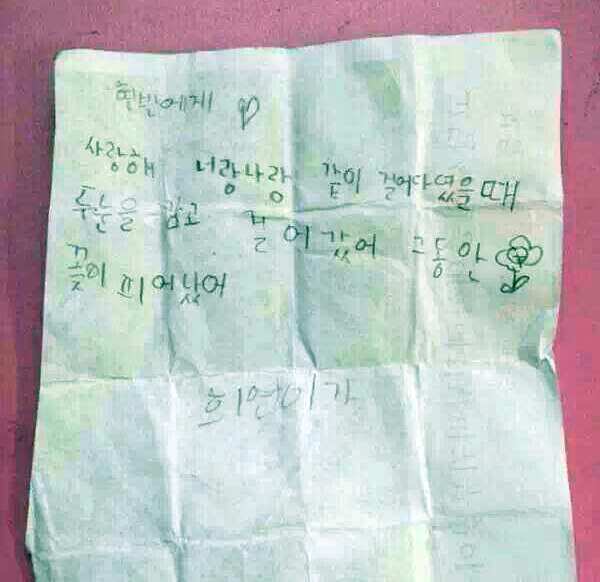 현빈에게
사랑해 너랑나랑 같이 걸어다녔을때
두눈을 감고 걸어갔어 그동안
꽃이 피어났어
희연이가